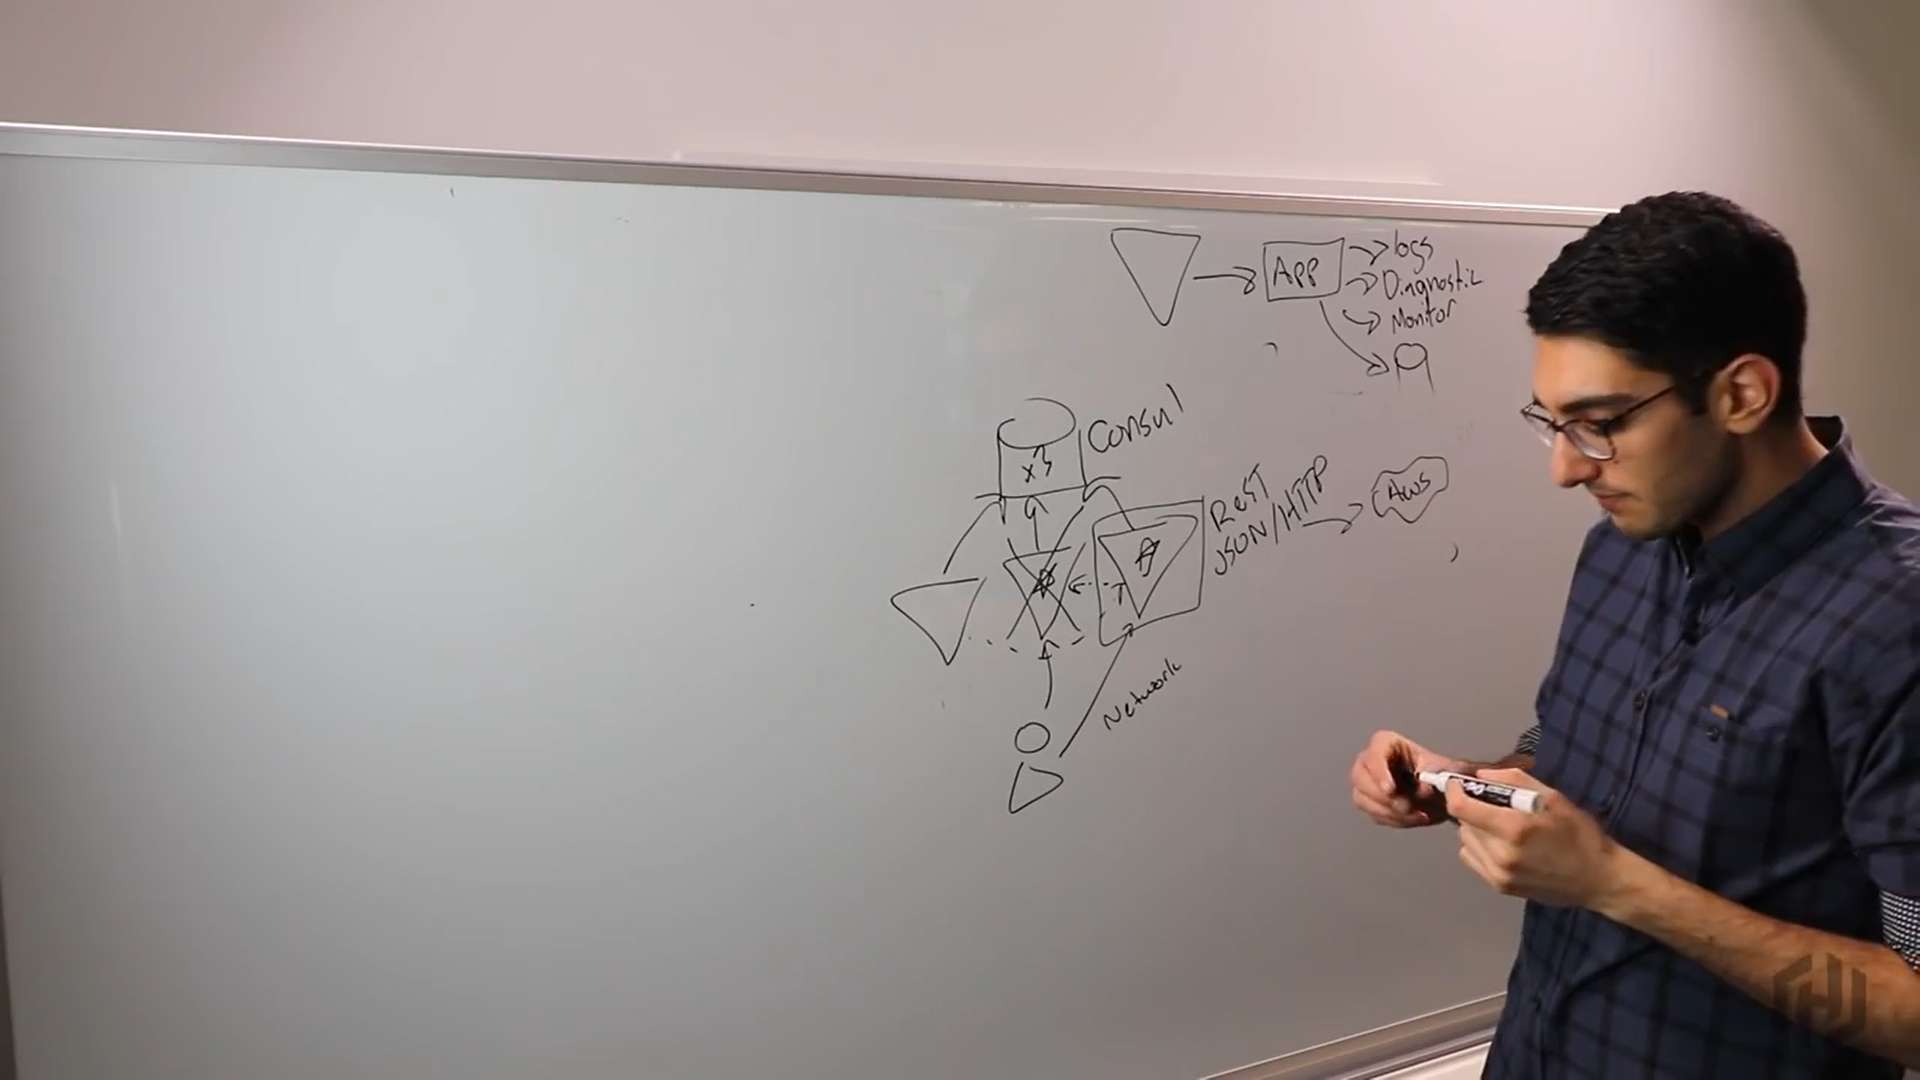 App
logs
Diagnostic
Monitor
Consul
x3
REST
JSON/HTTP
AWS
A
Network